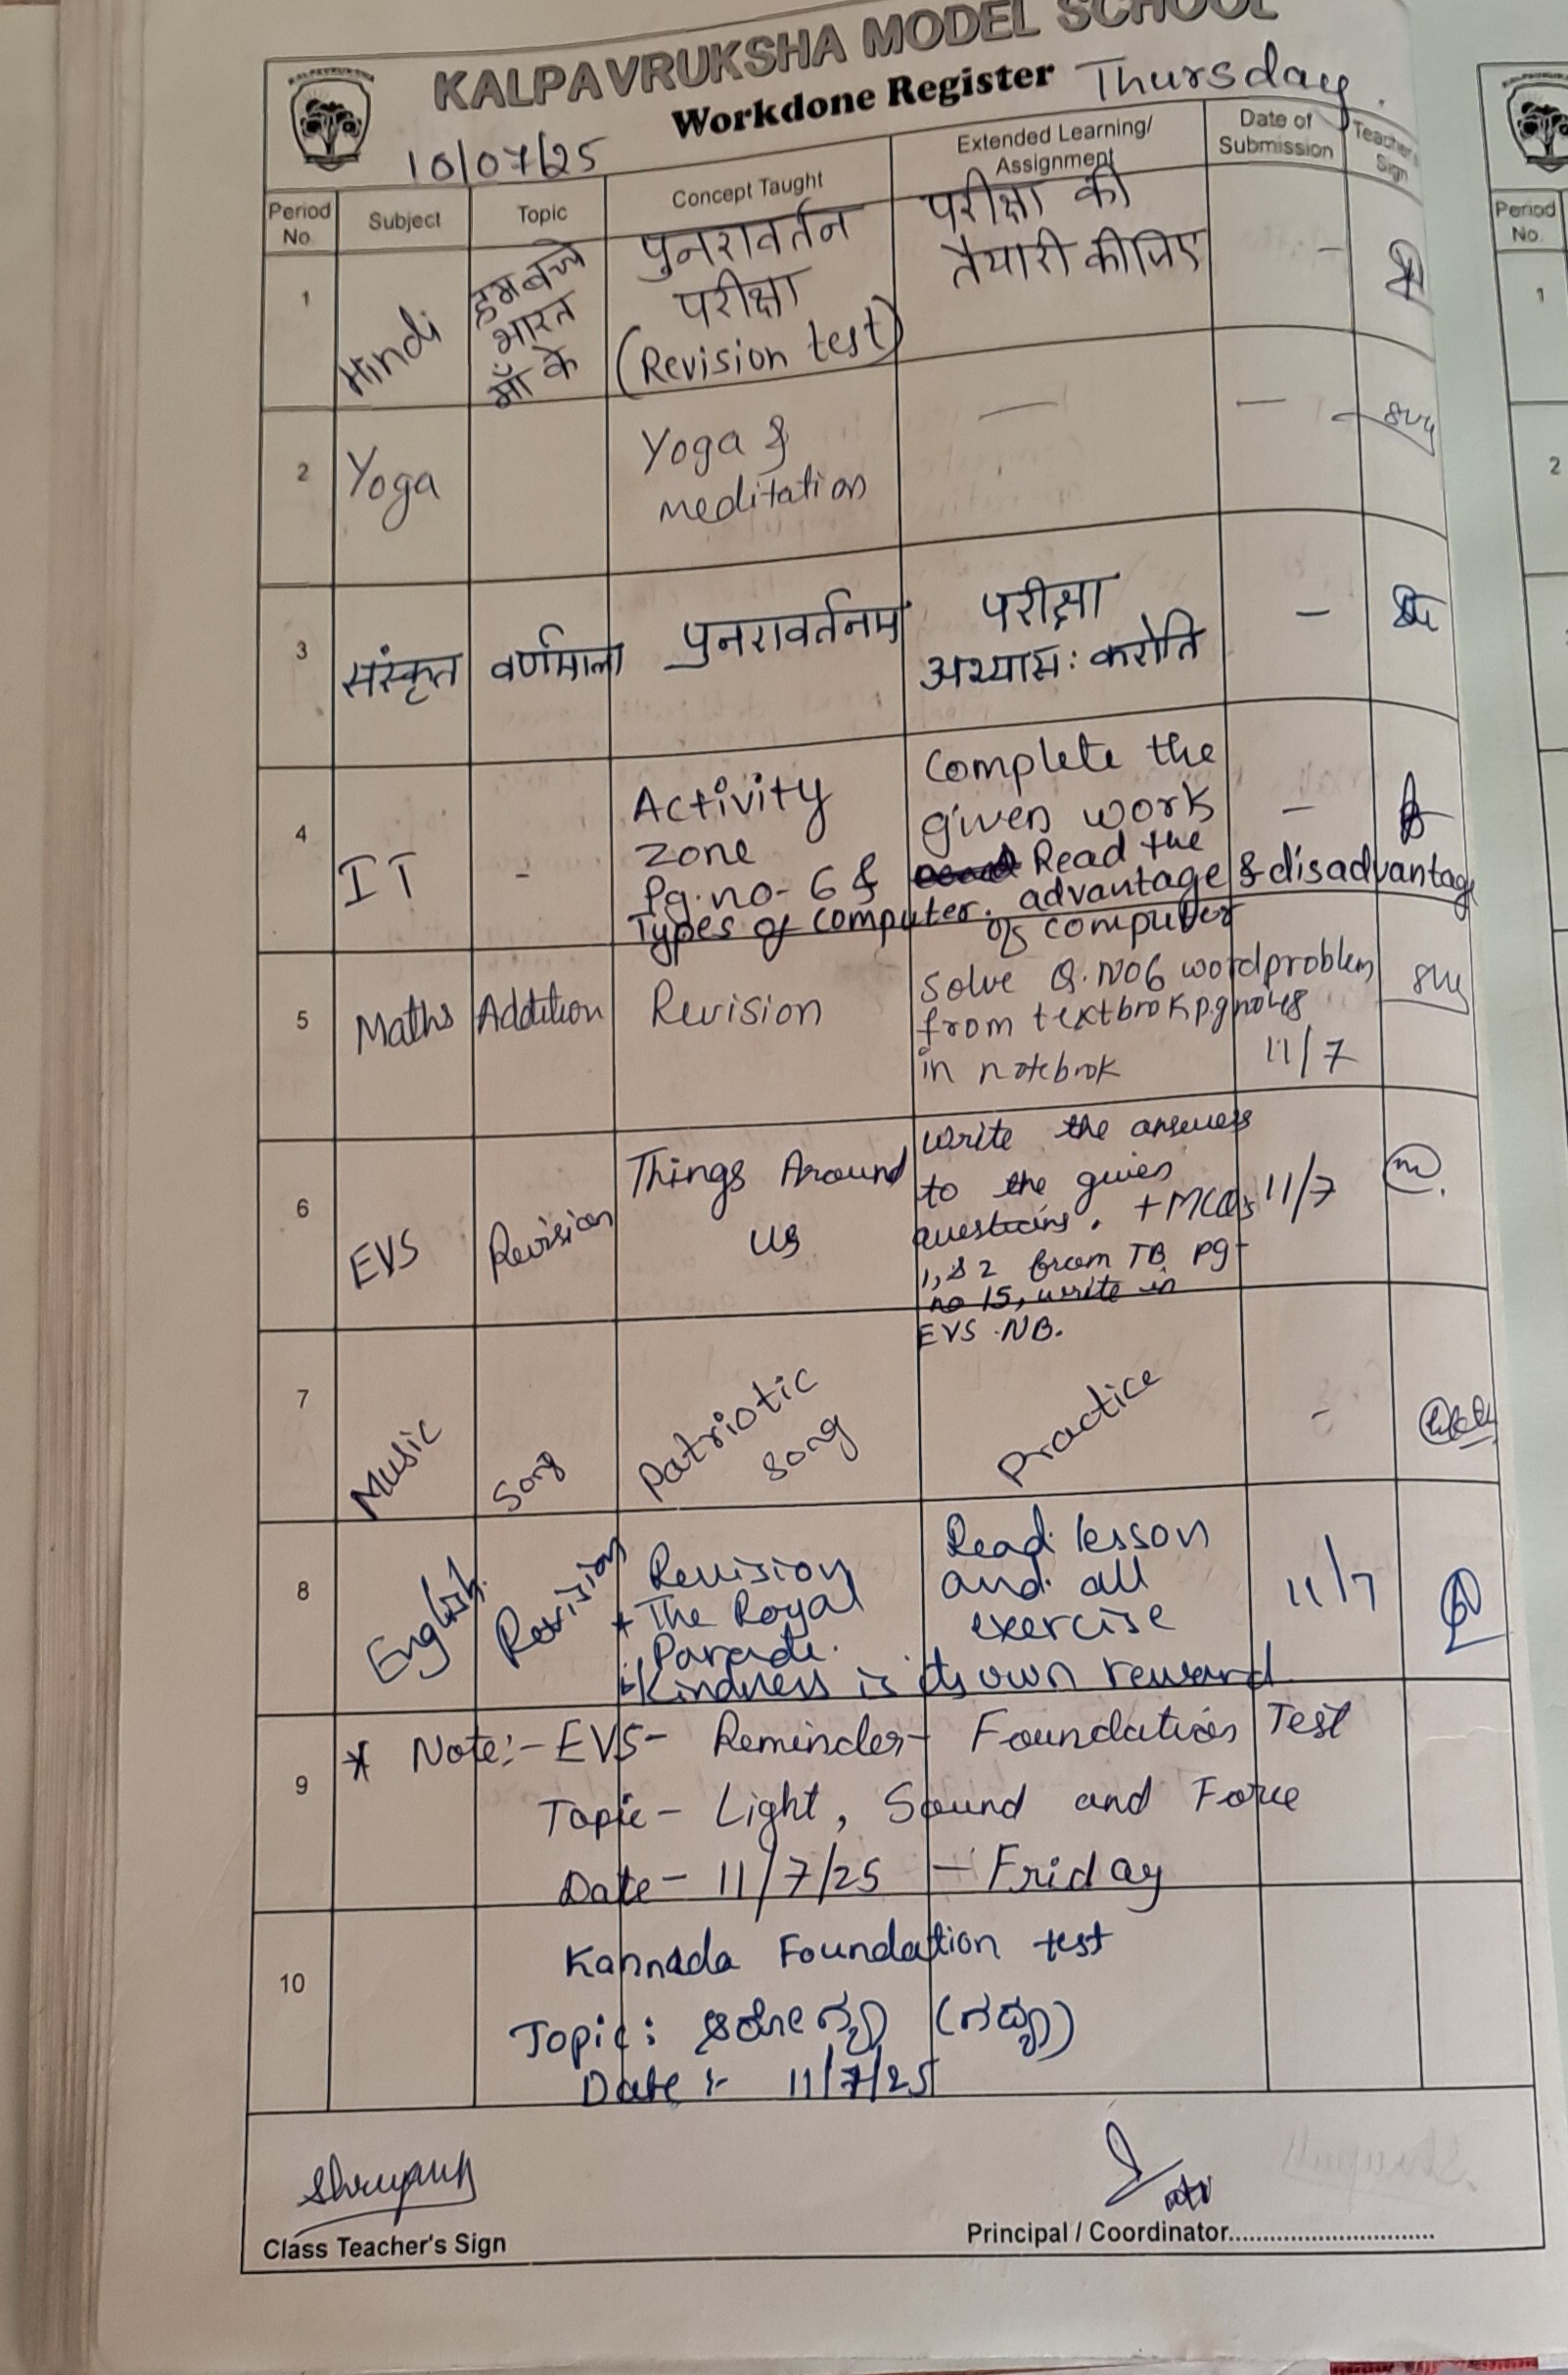 KALPAVRUKSHA
KALPAVRUKSHA MODEL SCHOOL
Workdone Register Thursday.
10/07/25
Period No
Subject
Topic
Concept Taught
Extended Learning/ Assignment
Date of Submission
Teacher's Sign
1
Hindi
हम बच्चे
भारत
माँ के
पुनरावर्तन
परीक्षा
(Revision test)
परीक्षा की
तैयारी कीजिए
-
2
Yoga
Yoga &
meditation
—
—
3
संस्कृत
वर्णमाला
पुनरावर्तनम्
परीक्षा
अभ्यासः करोति
-
4
IT
-
Activity
zone
Pg.no- 6 &
Types of computer.
Complete the
given work
Read the
advantage & disadvantage
of computer
-
5
Maths
Addition
Revision
Solve Q.NO6 wordproblem
from textbook pg no
in notebook
11/7
6
EVS
Revision
Things Around
us
Write the answers
to the given
questions. + MCQs
1, & 2 from TB pg-
no 15, write in
EVS .NB.
11/7
7
Music
Song
Patriotic
song
Practice
-
8
English.
Revision
Revision
* The Royal
Parade.
Kindness is its own reward
Read lesson
and all
exercise
11/7
9
* Note:- EVS- Reminder- Foundation Test
Topic- Light, Sound and Force
Date- 11/7/25 - Friday
10
Kannada Foundation test
Topic: ಆರೋಗ್ಯ (ಗದ್ಯ)
Date :- 11/7/25
Class Teacher's Sign
Principal / Coordinator
Period No.
1
2